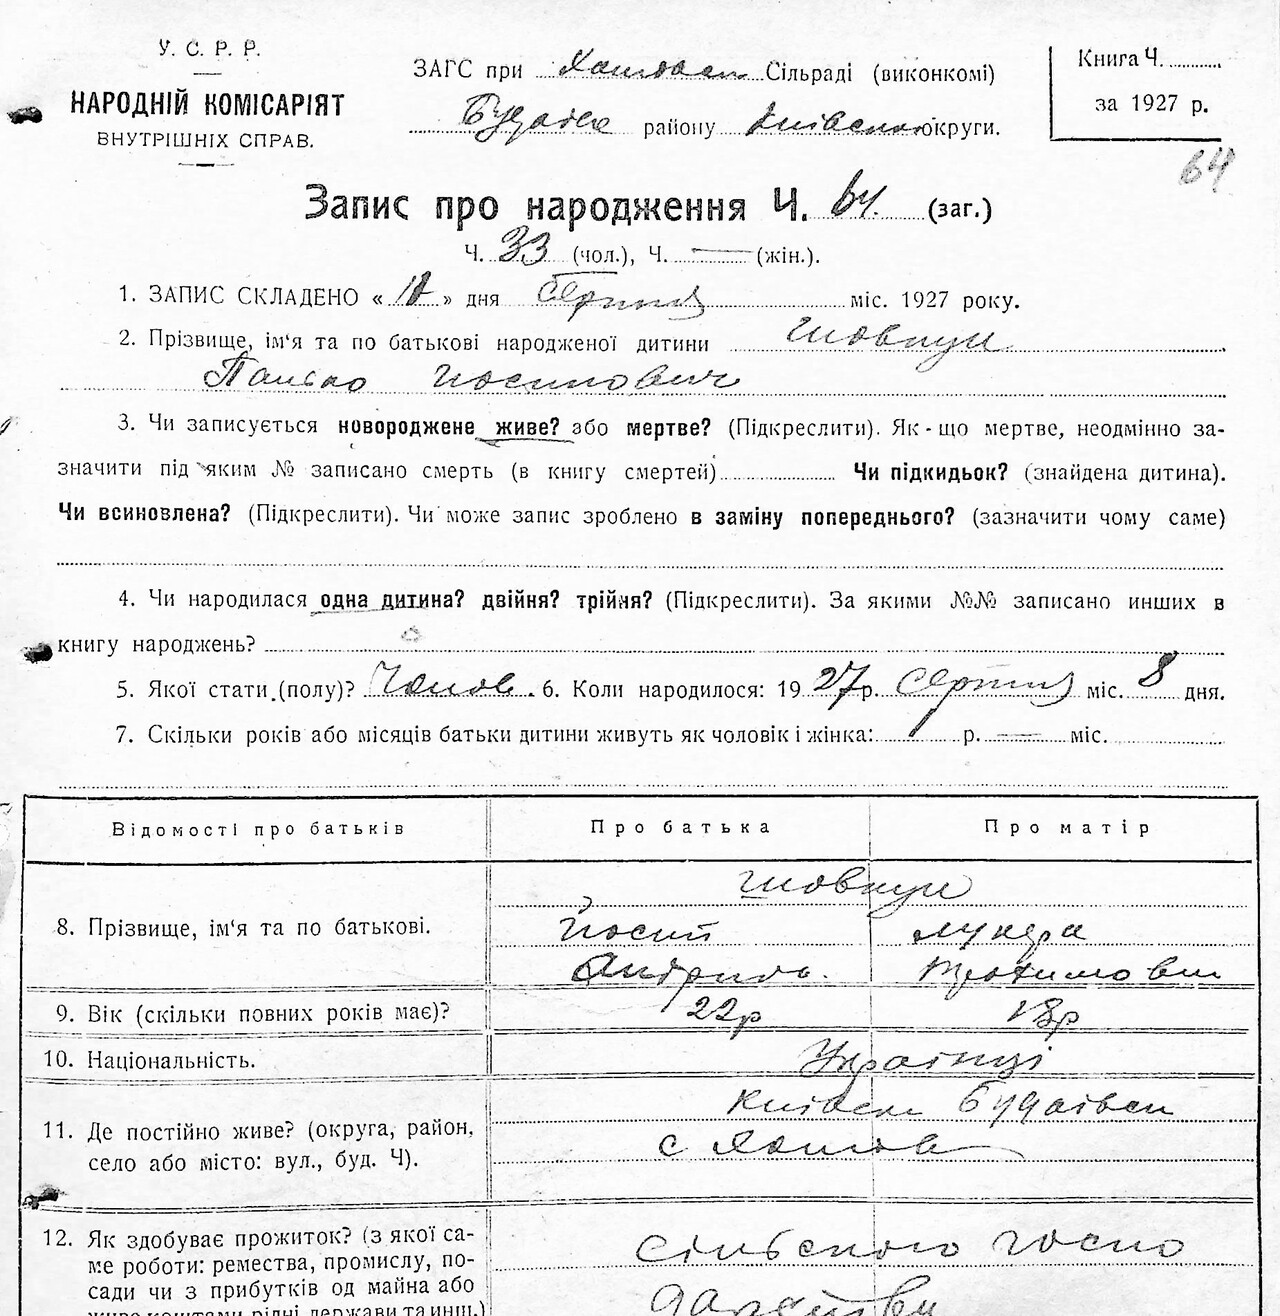 У. С. Р. Р.
НАРОДНІЙ КОМІСАРІЯТ
ВНУТРІШНІХ СПРАВ.
ЗАГС при Сільраді (виконкомі)
району Київської округи.
Книга Ч.
за 1927 р.
64
Запис про народження Ч. 64. (заг.)
Ч. 33 (чол.), Ч. — (жін.).
1. ЗАПИС СКЛАДЕНО « » дня Серпня міс. 1927 року.
2. Прізвище, ім'я та по батькові народженої дитини Шовкун
Панько Йосипович
3. Чи записується новороджене живе? або мертве? (Підкреслити). Як-що мертве, неодмінно за-
значити під яким № записано смерть (в книгу смертей) Чи підкидьок? (знайдена дитина).
Чи всиновлена? (Підкреслити). Чи може запис зроблено в заміну попереднього? (зазначити чому саме)
4. Чи народилася одна дитина? двійня? трійня? (Підкреслити). За якими №№ записано инших в
книгу народжень?
5. Якої стати (полу)? Чолов. 6. Коли народилося: 1927р. Серпня міс. 8 дня.
7. Скільки років або місяців батьки дитини живуть як чоловік і жінка: 1 р. — міс.
Відомості про батьків Про батька Про матір
Шовкун
8. Прізвище, ім'я та по батькові. Йосип
9. Вік (скільки повних років має)? 22р 18р
10. Національність. Українці
11. Де постійно живе? (округа, район,
село або місто: вул., буд. Ч).
с
12. Як здобуває прожиток? (з якої са-
ме роботи: ремества, промислу, по-
сади чи з прибутків од майна або
живе коштами рідні, держави та инш.)
сільського госпо
дарства